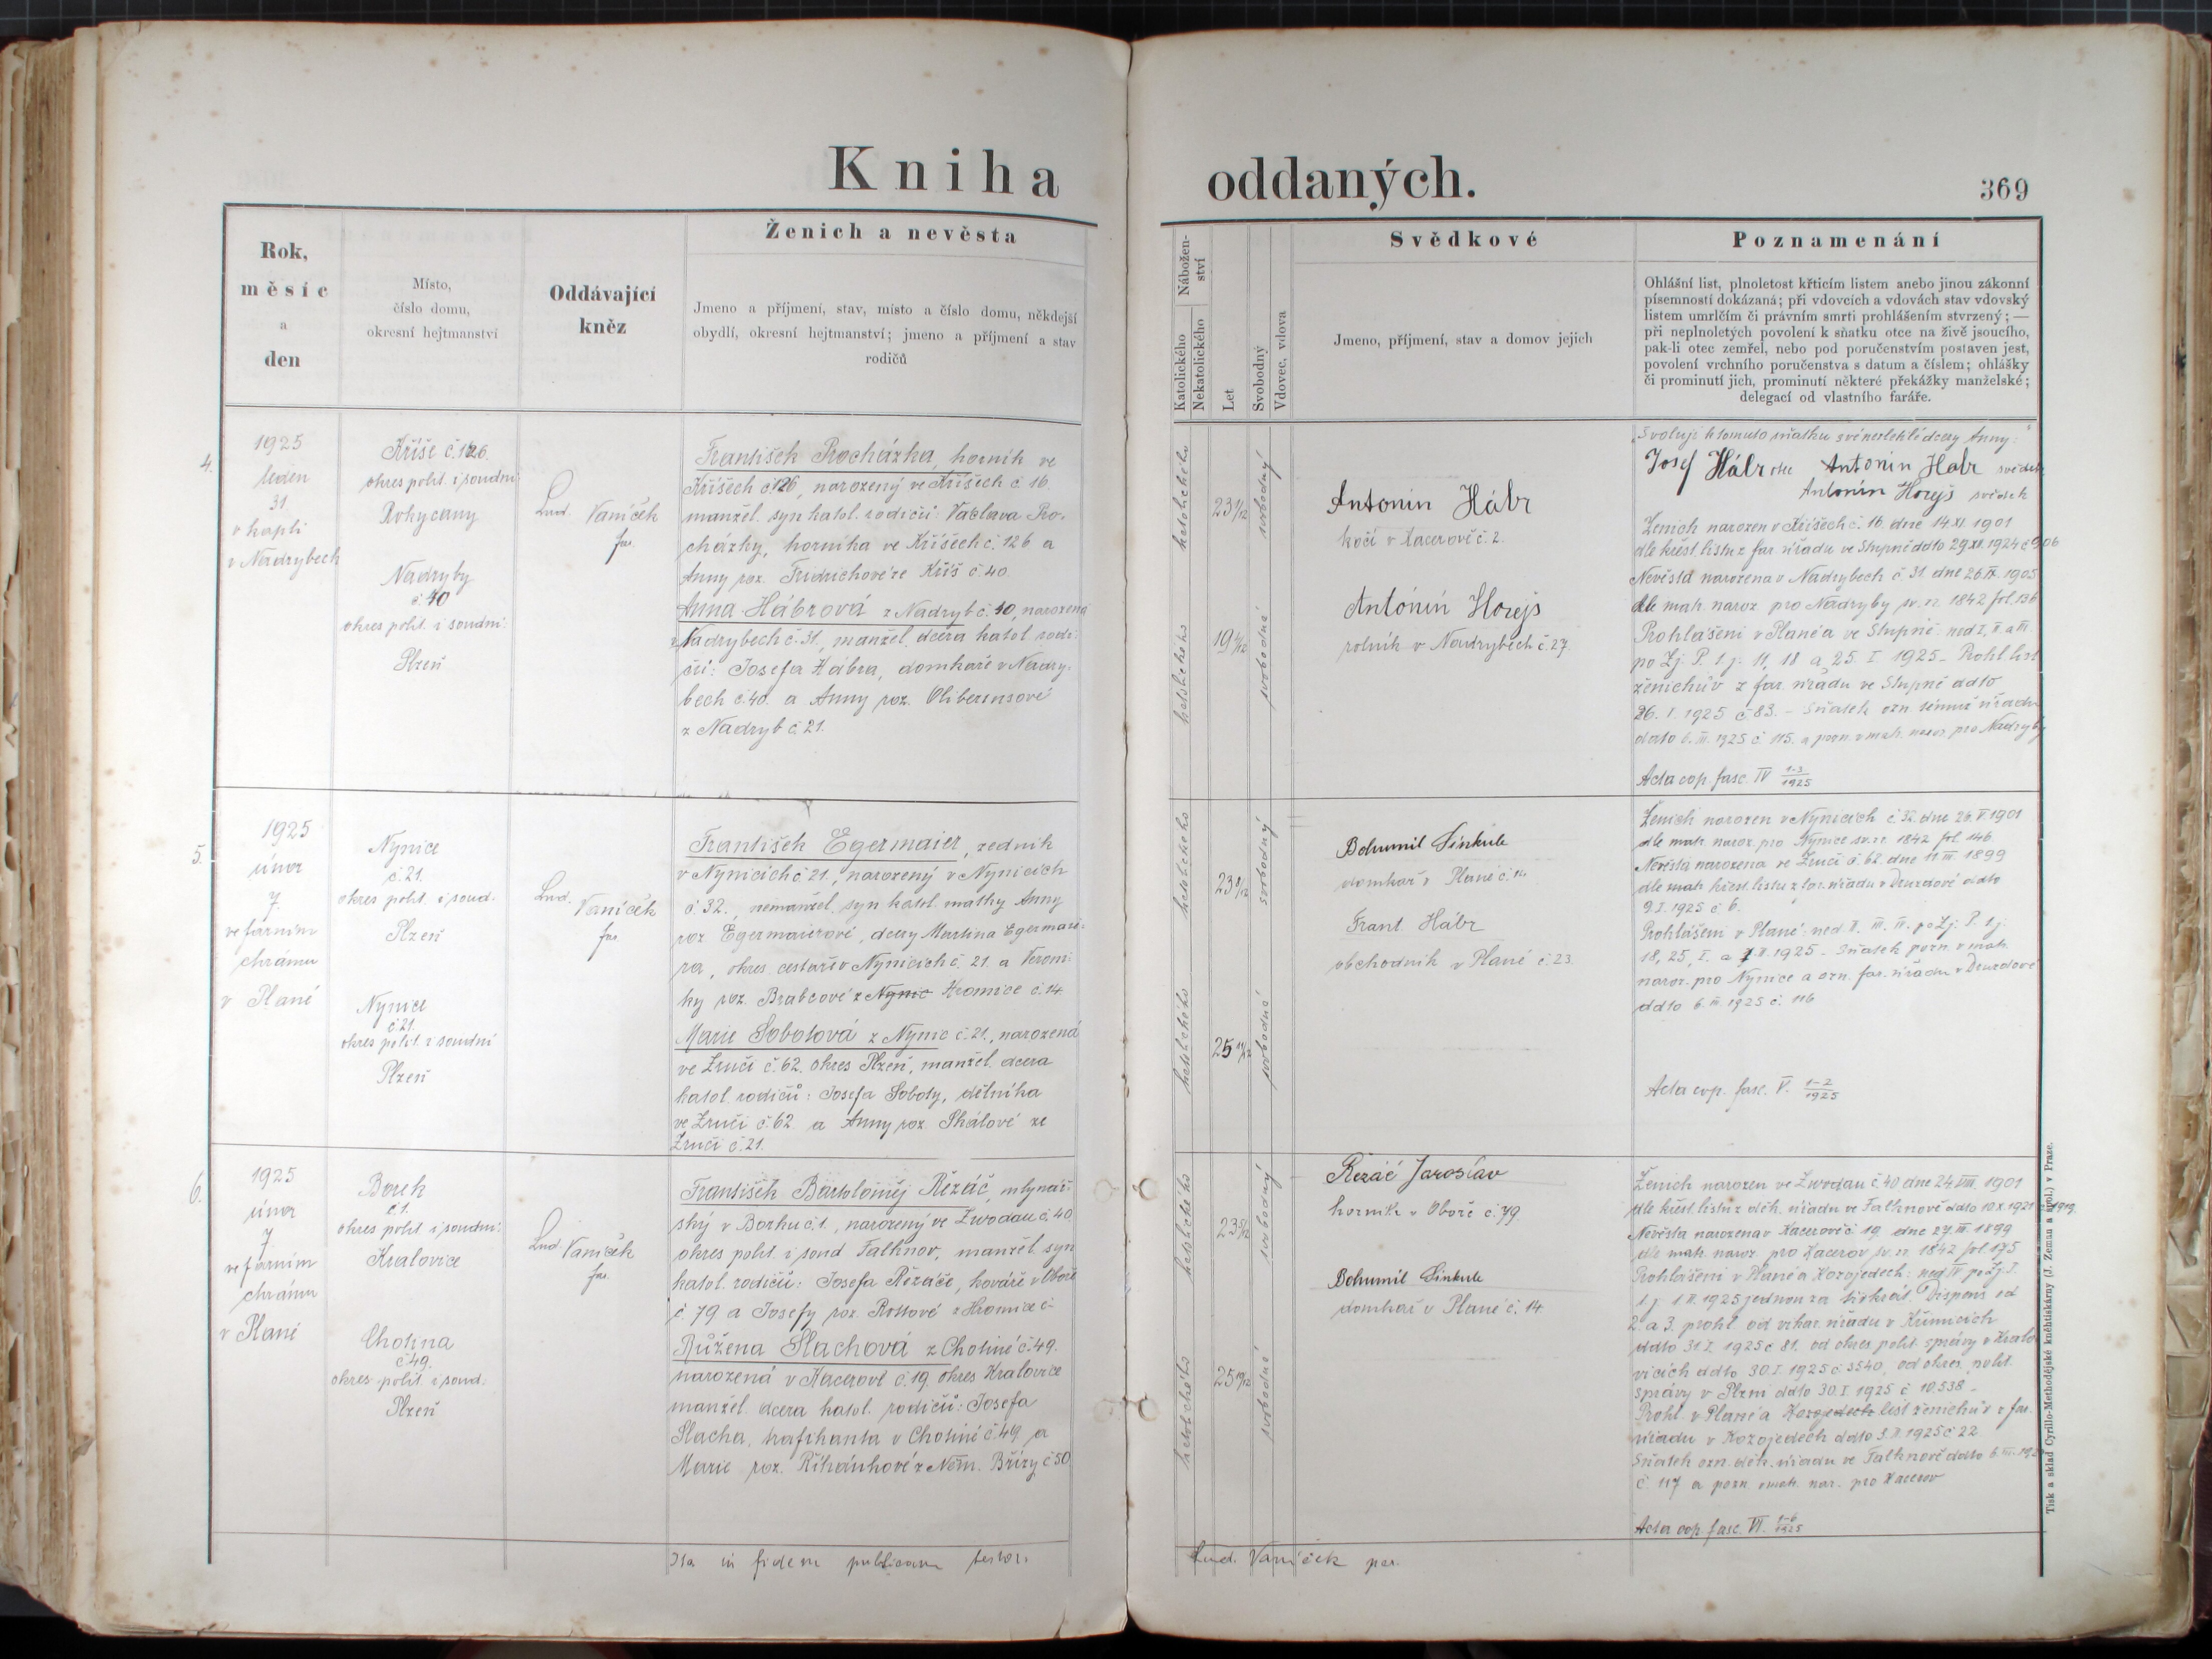 Kniha oddaných.
369
Rok,
měsíc
a
den
Místo,
číslo domu,
okresní hejtmanství
Oddávající
kněz
Ženich a nevěsta
Jmeno a příjmení, stav, místo a číslo domu, někdejší
obydlí, okresní hejtmanství; jmeno a příjmení a stav
rodičů
Nábožen-
ství
Katolického
Nekatolického
Let
Svobodný
Vdovec, vdova
Svědkové
Jmeno, příjmení, stav a domov jejich
Poznamenání
Ohlášní list, plnoletost křticím listem anebo jinou zákonní
písemností dokázaná; při vdovcích a vdovách stav vdovský
listem umrlčím či právním smrti prohlášením stvrzený; —
při neplnoletých povolení k sňatku otce na živě jsoucího,
pak-li otec zemřel, nebo pod poručenstvím postaven jest,
povolení vrchního poručenstva s datum a číslem; ohlášky
či prominutí jich, prominutí některé překážky manželské;
delegací od vlastního faráře.
4.
1925
leden
31.
v kapli
v Nadrybech
Kříše č. 126.
okres polit. i soudní
Rokycany
Nadryby
č. 40
okres polit. i soudní:
Plzeň
Lud. Vaníček
far.
František Procházka, horník ve
Kříšech č. 126, narozený ve Kříšech č. 16.
manžel. syn katol. rodičů: Václava Pro-
cházky, horníka ve Kříšech č. 126 a
Anny roz. Fridrichové ze Kříš č. 40.
Anna Hábrová z Nadryb č. 40, narozená
v Nadrybech č. 31, manžel. dcera katol. rodi-
čů: Josefa Hábra, domkáře v Nadry-
bech č. 40. a Anny roz.
z Nadryb č. 21.
katolického
23 1/12
svobodný
katolického
19 4/12
svobodná
Antonín Hábr
kočí v Kacerově č. 2.
Antonín Horejs
rolník v Nadrybech č. 27.
"Svoluji k tomuto sňatku své nezletilé dcery Anny:"
Josef Hábr otec Antonín Habr svědek
Antonín Horejs svědek
Ženich narozen v Kříšech č. 16. dne 14.XI. 1901
dle křest. listu z far. úřadu ve Stupně ddto 29.XII. 1924 č. 906
Nevěsta narozena v Nadrybech č. 31. dne 26.IX. 1905
dle matr. naroz. pro Nadryby sv. n. 1842 fol. 136
Prohlášeni v Plané a ve Stupně: ned I, II. a III.
po Zj. P. t. j. 11, 18 a 25. I. 1925 - Prohl. list
ženichův z far. úřadu ve Stupně ddto
26. I. 1925 č 83. - Sňatek ozn. témuž úřadu
ddto 6. III. 1925 č. 115. a pozn. v matr. naroz. pro Nadryby
Acta cop. fasc. IV 1-3/1925
5.
1925
únor
7.
ve farním
chrámu
v Plané
Nynice
č. 21.
okres polit. i soud.
Plzeň
Nynice
č. 21.
okres polit. i soudní
Plzeň
Lud. Vaníček
far.
František Egermaier, zedník
v Nynicích č. 21., narozený v Nynicích
č. 32., nemanžel. syn katol. matky Anny
roz Egermaierové, dcery Martina Egermaie-
ra, okres. cestáře v Nynicích č. 21. a Veroni-
ky roz. Brabcové z Nynic Hromice č. 14.
Marie Sobotová z Nynic č. 21., narozená
ve Zruči č. 62. okres Plzeň, manžel. dcera
katol. rodičů: Josefa Soboty, dělníka
ve Zruči č. 62 a Anny roz. Skálové ze
Zruči č. 21.
katolického
23 8/12
svobodný
katolického
25 11/12
svobodná
Bohumil Sinkule
domkář v Plané č. 14.
Frant. Hábr
obchodník v Plané č. 23.
Ženich narozen v Nynicích č. 32. dne 26. V. 1901
dle matr. naroz. pro Nynice sv. n. 1842 fol. 146.
Nevěsta narozena ve Zruči č. 62. dne 11. III. 1899
dle matr. křest. listu z far. úřadu v Druzdové ddto
9. I. 1925 č. 6.
Prohlášeni v Plané: ned II. III. IV. po Zj. P. t. j.
18, 25, I. a 1. II. 1925 - Sňatek pozn. v matr.
naroz. pro Nynice a ozn. far. úřadu v Druzdové
ddto 6. III. 1925 č. 116
Acta cop. fasc. V. 1-2/1925
6.
1925
únor
7
ve farním
chrámu
v Plané
Borek
č. 1.
okres polit i soudní:
Kralovice
Chotina
č. 49.
okres polit. i soud.
Plzeň
Lud. Vaníček
far.
František Bartoloměj Řezáč, mlynář-
ský v Borku č. 1., narozený ve Zwodau č. 40,
okres polit. i soud Falknov, manžel. syn
katol. rodičů: Josefa Řezáče, kováře v Oboře
č. 79 a Josefy roz. z Hromice č.
Růžena Šlachová z Chotiné č. 49.
narozená v Kacerově č. 19. okres Kralovice
manžel. dcera katol. rodičů: Josefa
Šlacha, v Chotiné č. 49. a
Marie roz. z Něm. Břízy č 50
katolického
23 5/12
svobodný
katolického
25 10/12
svobodná
Rezáč Jaroslav
horník v Oboře č. 79.
Bohumil Sinkule
domkář v Plané č. 14.
Ženich narozen ve Zwodau č. 40 dne 24. VIII. 1901
dle křest. listu z děk. úřadu ve Falknově ddto 10. X. 1921 č. 1919.
Nevěsta narozena v Kacerově č. 19. dne 27. III. 1899
dle matr. naroz. pro Kacerov sv. n. 1842 fol. 175
Prohlášeni v Plané a Kozojedech: ned IV po Zj. P.
t. j. 1. II. 1925 jednou za třikrát. Dispens od
2. a 3. prohl. od vikar. úřadu v Křimicích
ddto 31. I. 1925 č. 81. od okres. polit. správy v Kralo-
vicích ddto 30. I. 1925 č. 3540, od okres. polit.
správy v Plzni ddto 30. I. 1925 č. 10.538 -
Prohl. v Plané a Kozojedech list ženichův z far.
úřadu v Kozojedech ddto 3. II. 1925 č. 22
Sňatek ozn. děk. úřadu ve Falknově ddto 6. III. 192
č. 117 a pozn. v matr. nar. pro Kacerov
Acta cop. fasc. VI. 1-6/1925
Ita in fidem publicam testor: Lud. Vaníček par.
Tisk a sklad Cyrillo-Methodějské knihtiskárny (J. Zeman a spol.) v Praze.